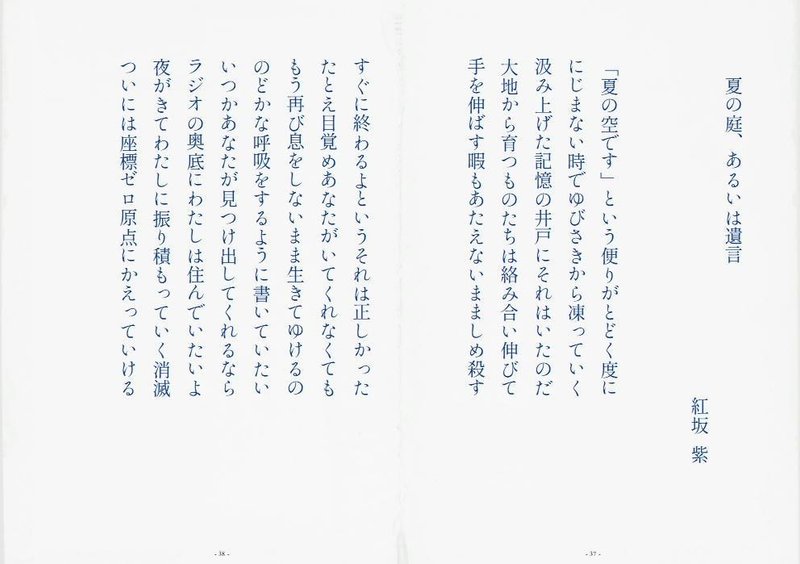 夏の庭、あるいは遺言
紅坂 紫
「夏の空です」という便りがとどく度に
にじまない時でゆびさきから凍っていく
汲み上げた記憶の井戸にそれはいたのだ
大地から育つものたちは絡み合い伸びて
手を伸ばす暇もあたえないまましめ殺す
- 37 -
すぐに終わるよというそれは正しかった
たとえ目覚めあなたがいてくれなくても
もう再び息をしないまま生きてゆけるの
のどかな呼吸をするように書いていたい
いつかあなたが見つけ出してくれるなら
ラジオの奥底にわたしは住んでいたいよ
夜がきてわたしに振り積もっていく消滅
ついには座標ゼロ原点にかえっていける
- 38 -